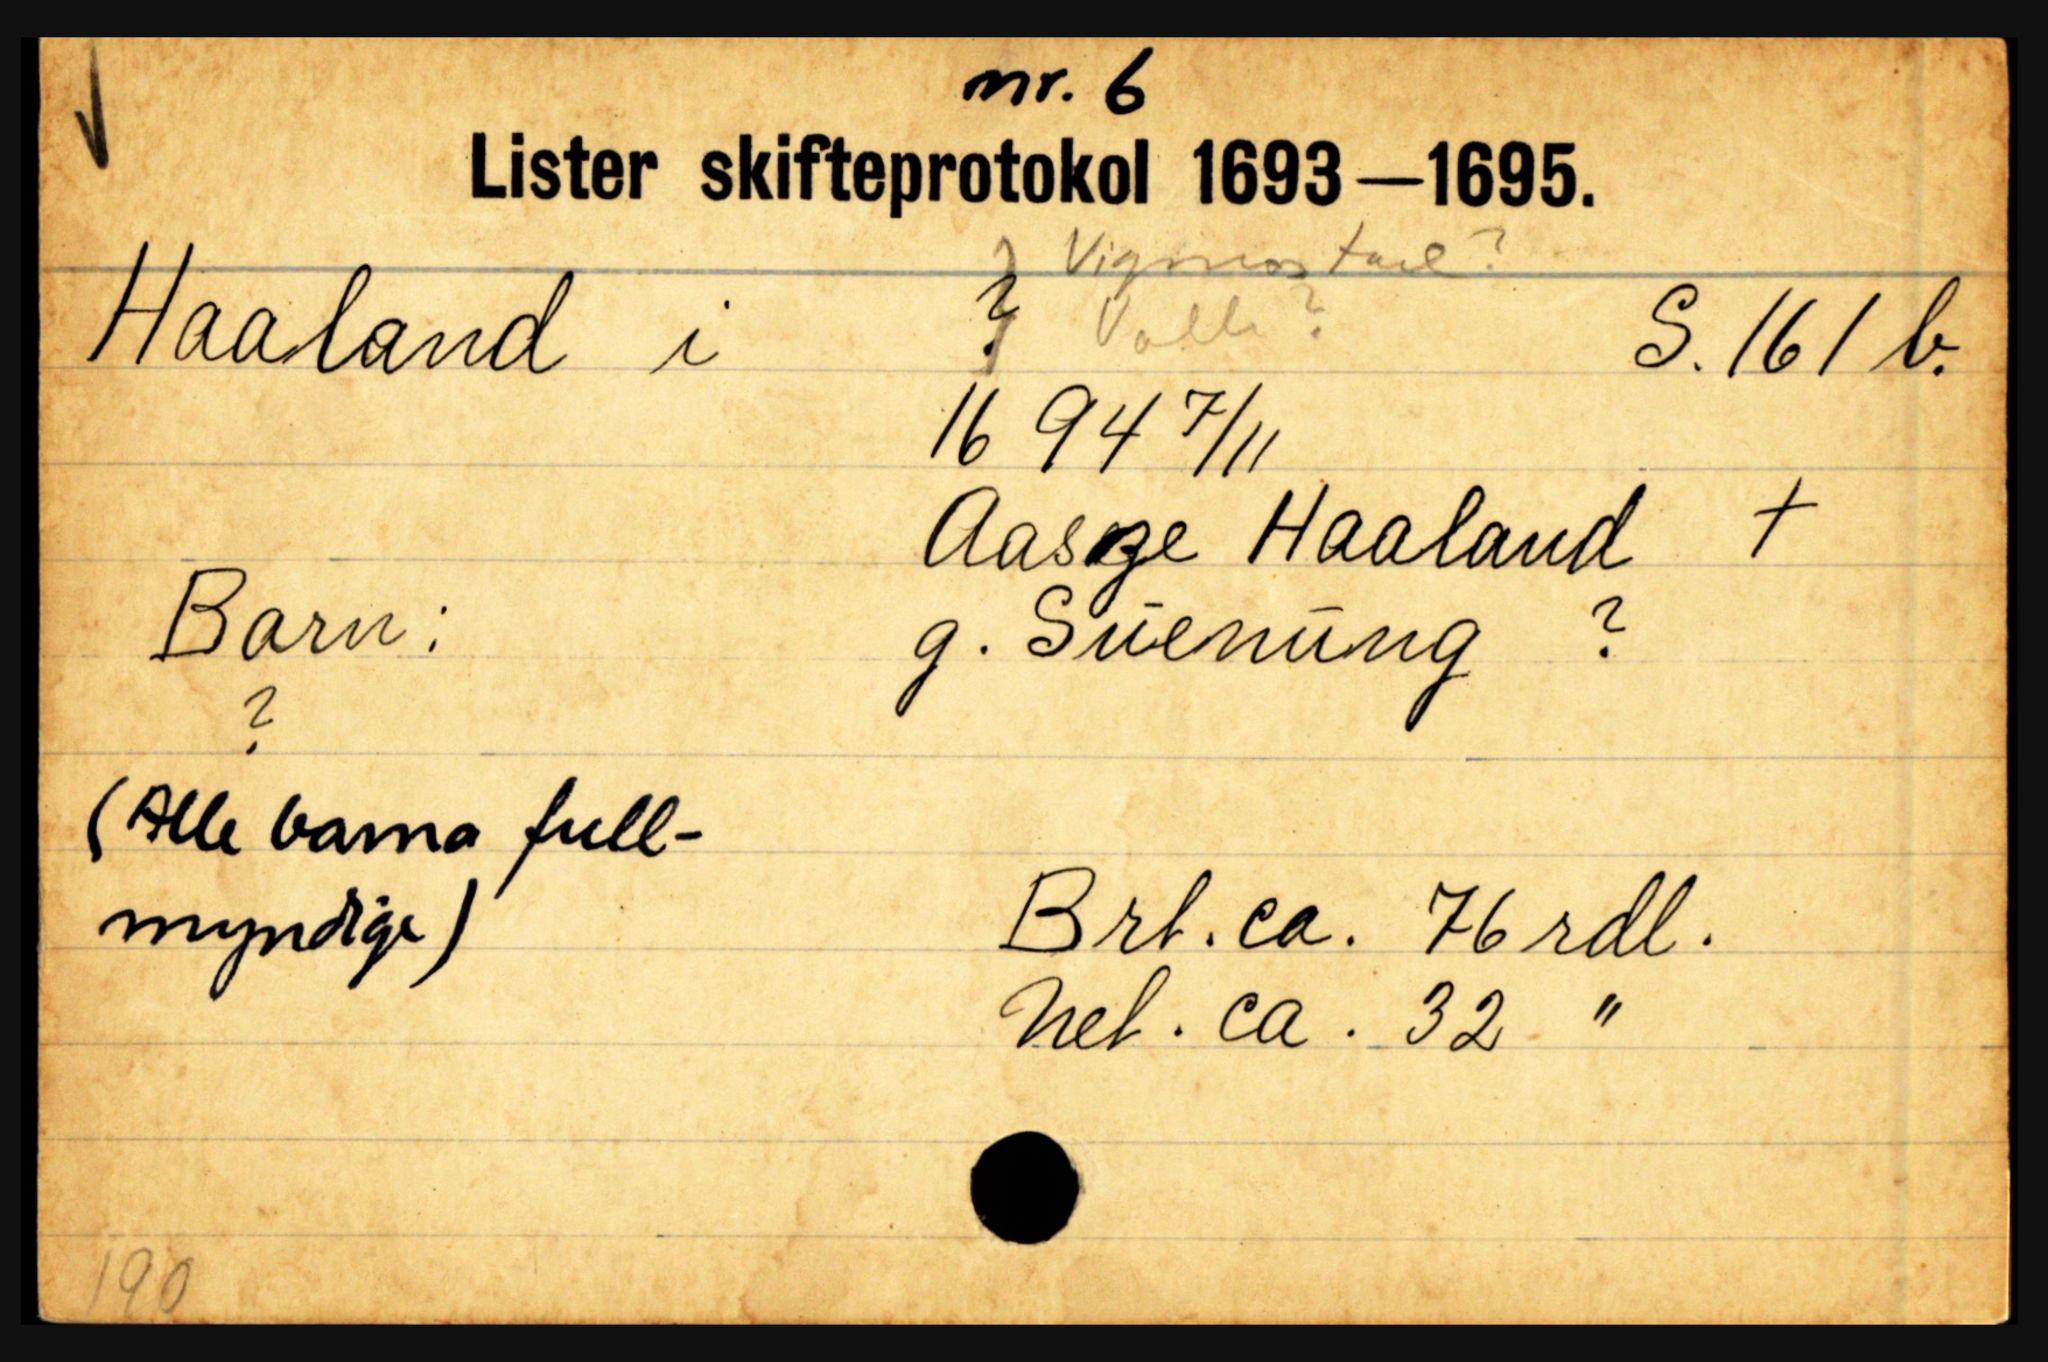 nr. 6
Lister skifteprotokol 1693—1695.
Vigmostad?
Haaland i ? Valle? S. 161 b.
1694 7/11
Haaland +
Barn: g. Sūenūng ?
?
(Alle barna full-
myndige)
Brt. ca. 76 rdl.
Net. ca. 32 "
190